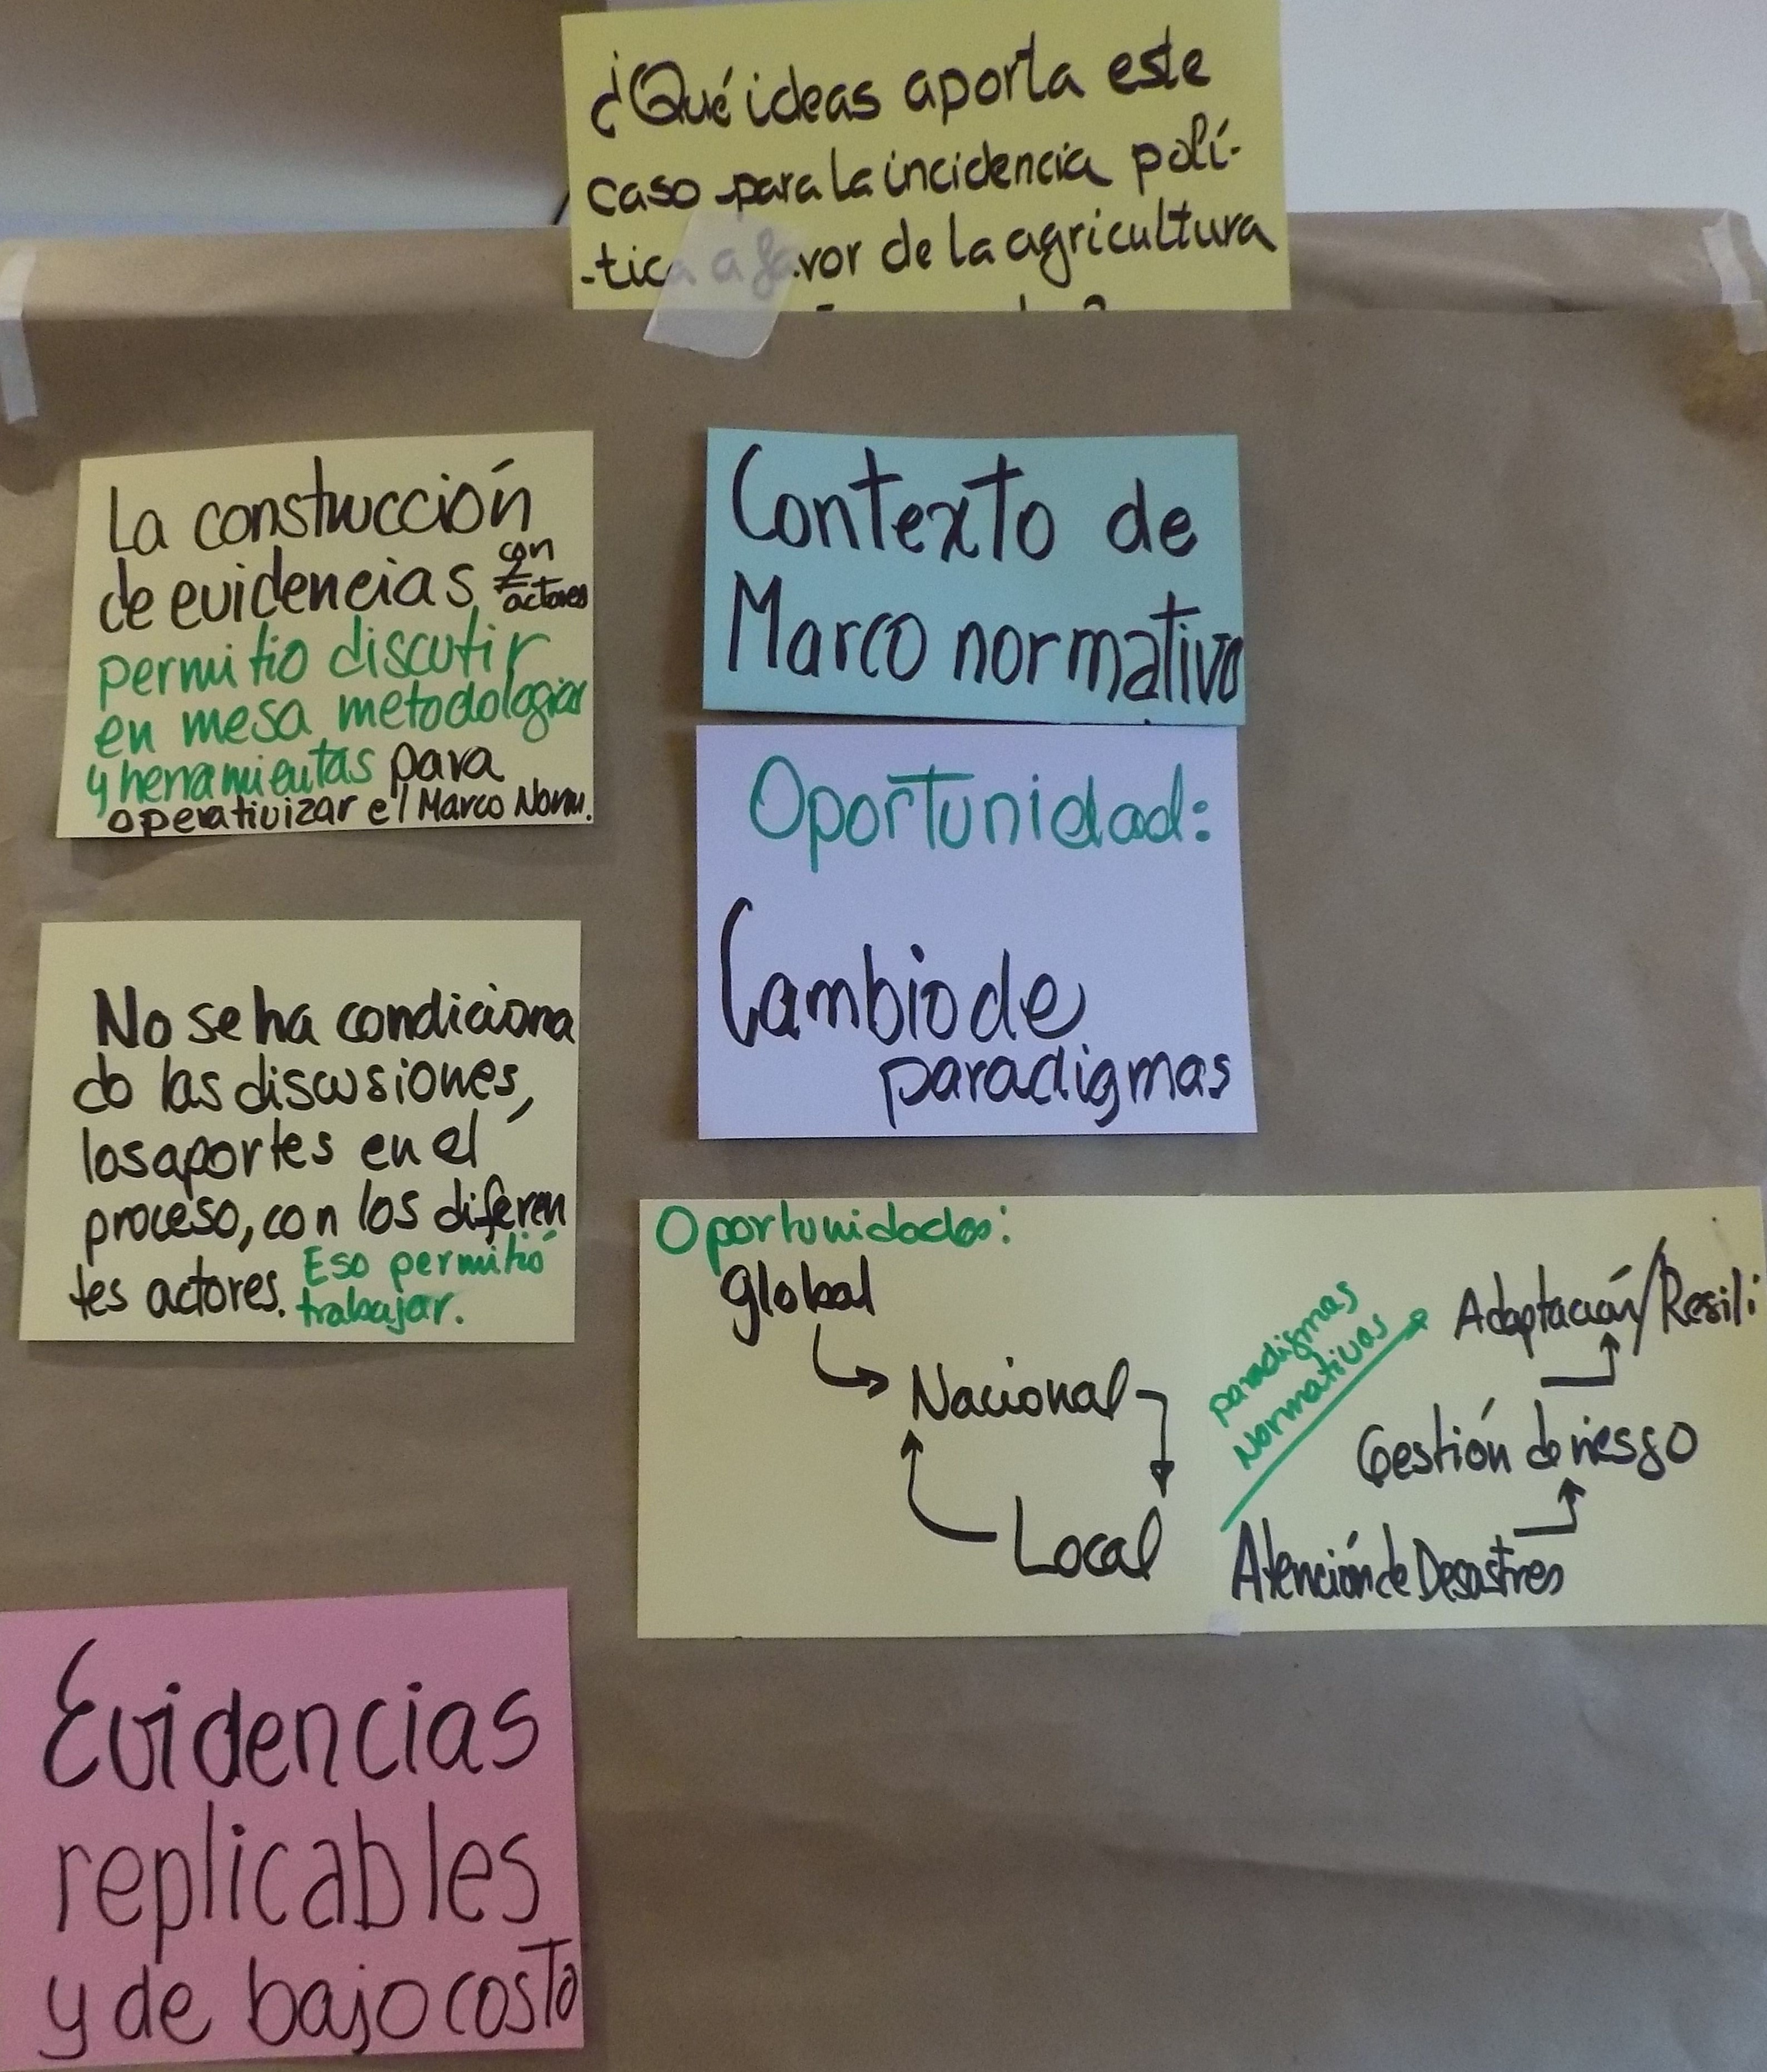 ¿Qué ideas aporta este
caso para la incidencia polí-
-tica a favor de la agricultura
La construcción
de evidencias con
actores
permitio discutir
en mesa metodologias
y herramientas para
operativizar el Marco Norm.
No se ha condiciona
do las discusiones,
los aportes en el
proceso, con los diferen
tes actores. Eso permitió
trabajar.
Evidencias
replicables
y de bajo costo
Contexto de
Marco normativo
Oportunidad:
Cambio de
paradigmas
Oportunidades:
global
Nacional
Local
paradigmas
Normativos
Adaptación/Resili
Gestión de riesgo
Atención de Desastres